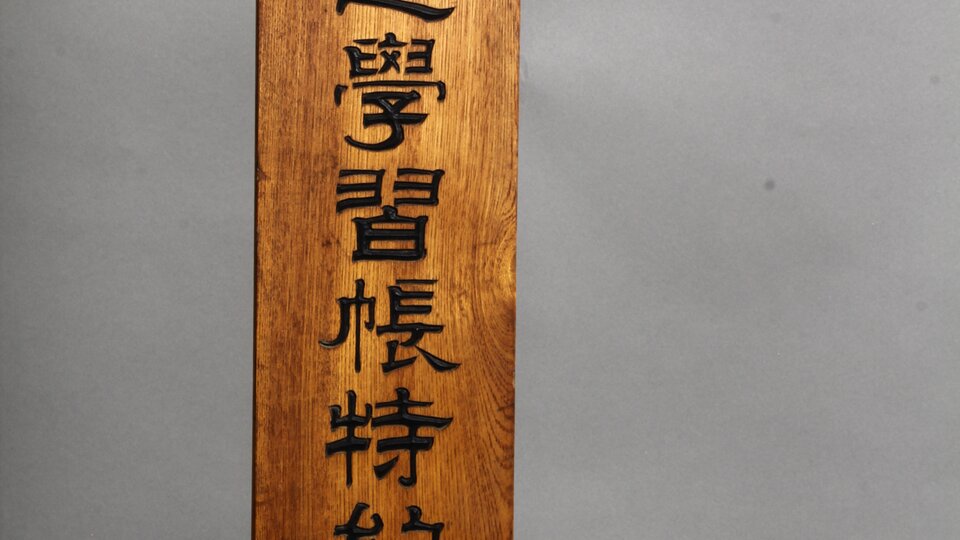 學習帳特